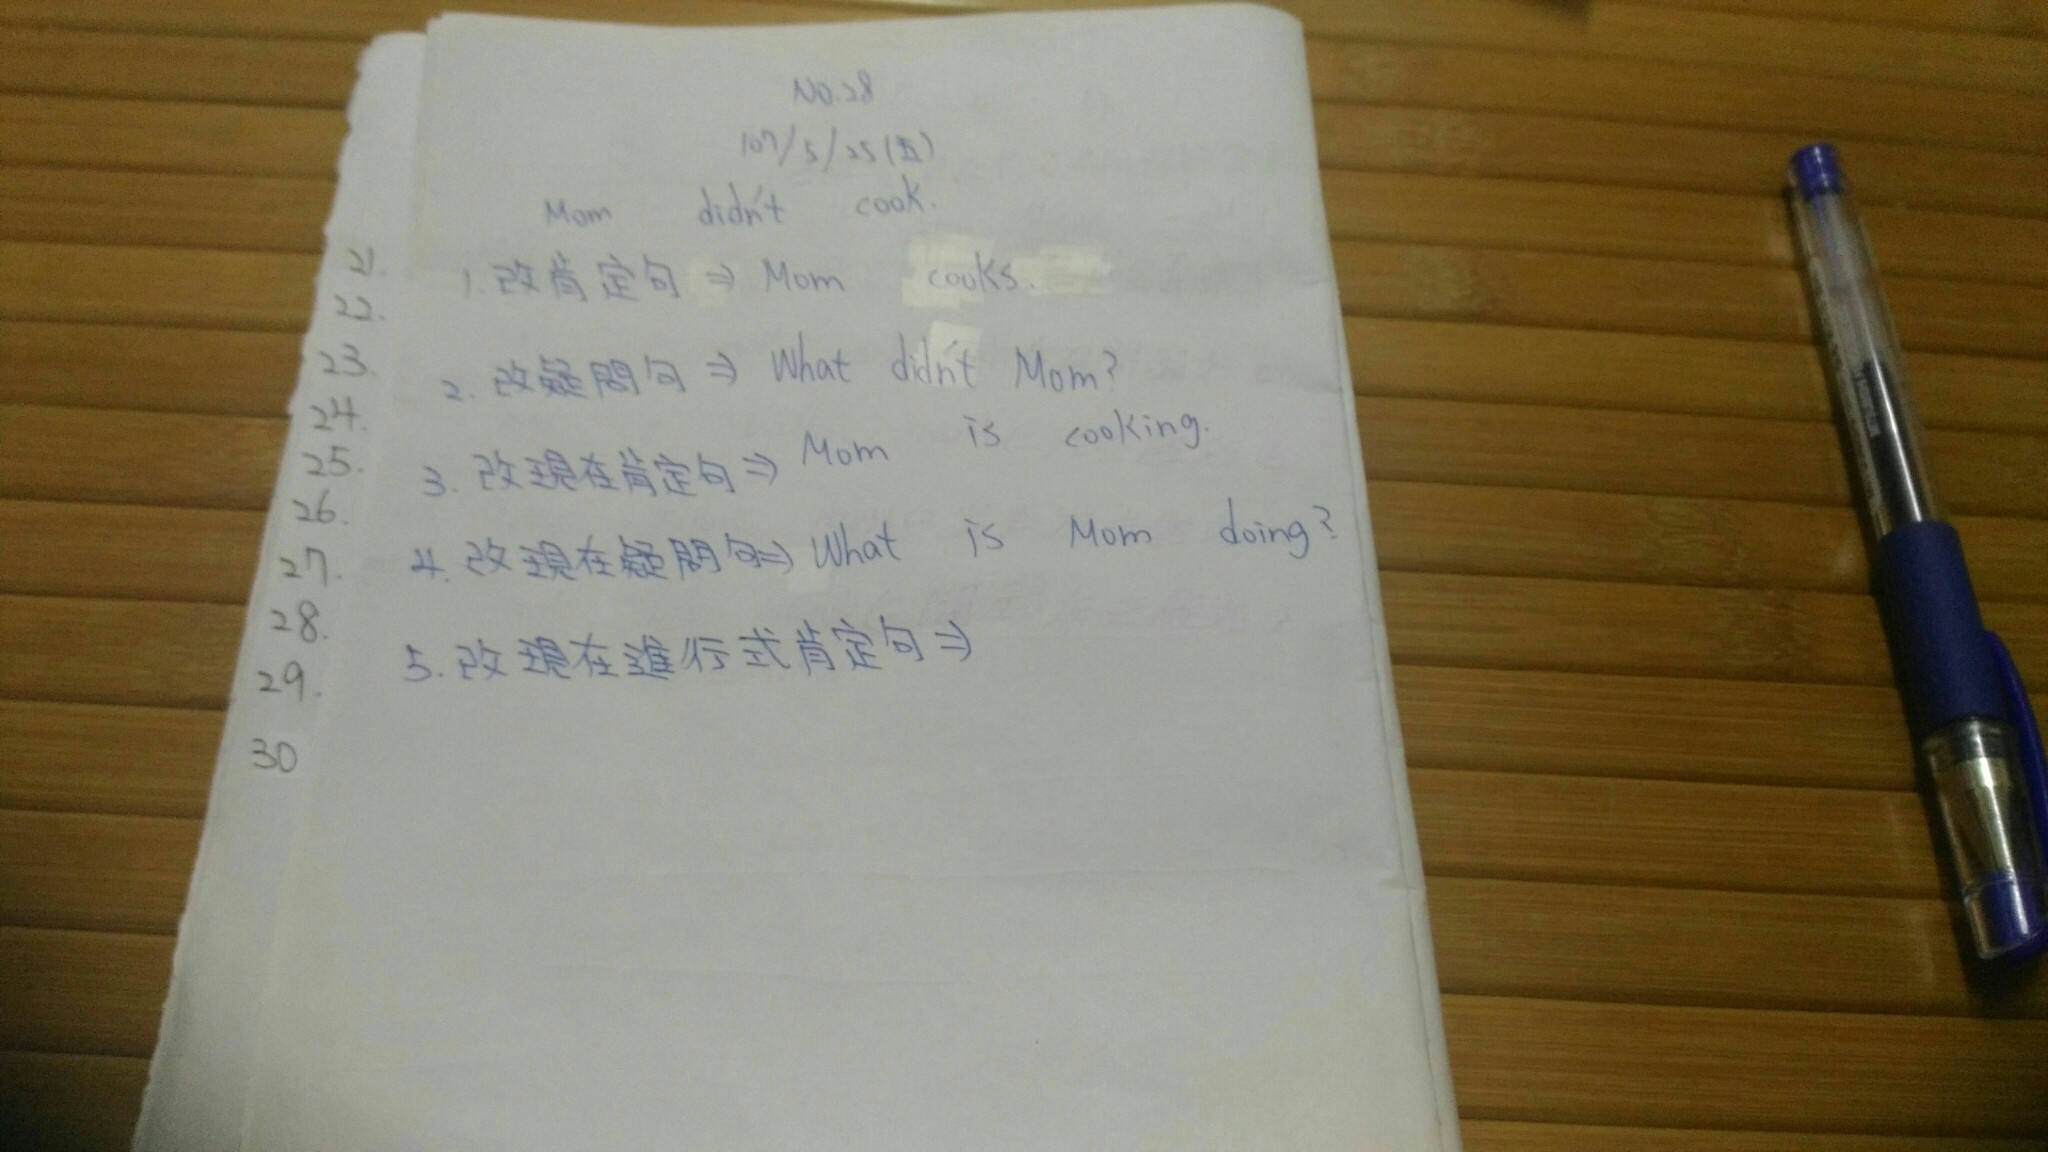 No.28
107/5/25(五)
Mom didn't cook.
21.
1.改肯定句⇒ Mom cooks.
22.
23.
2.改疑問句⇒ What didn't Mom?
24.
25.
3.改現在肯定句⇒ Mom is cooking.
26.
27.
4.改現在疑問句⇒ What is Mom doing?
28.
29.
5.改現在進行式肯定句⇒
30